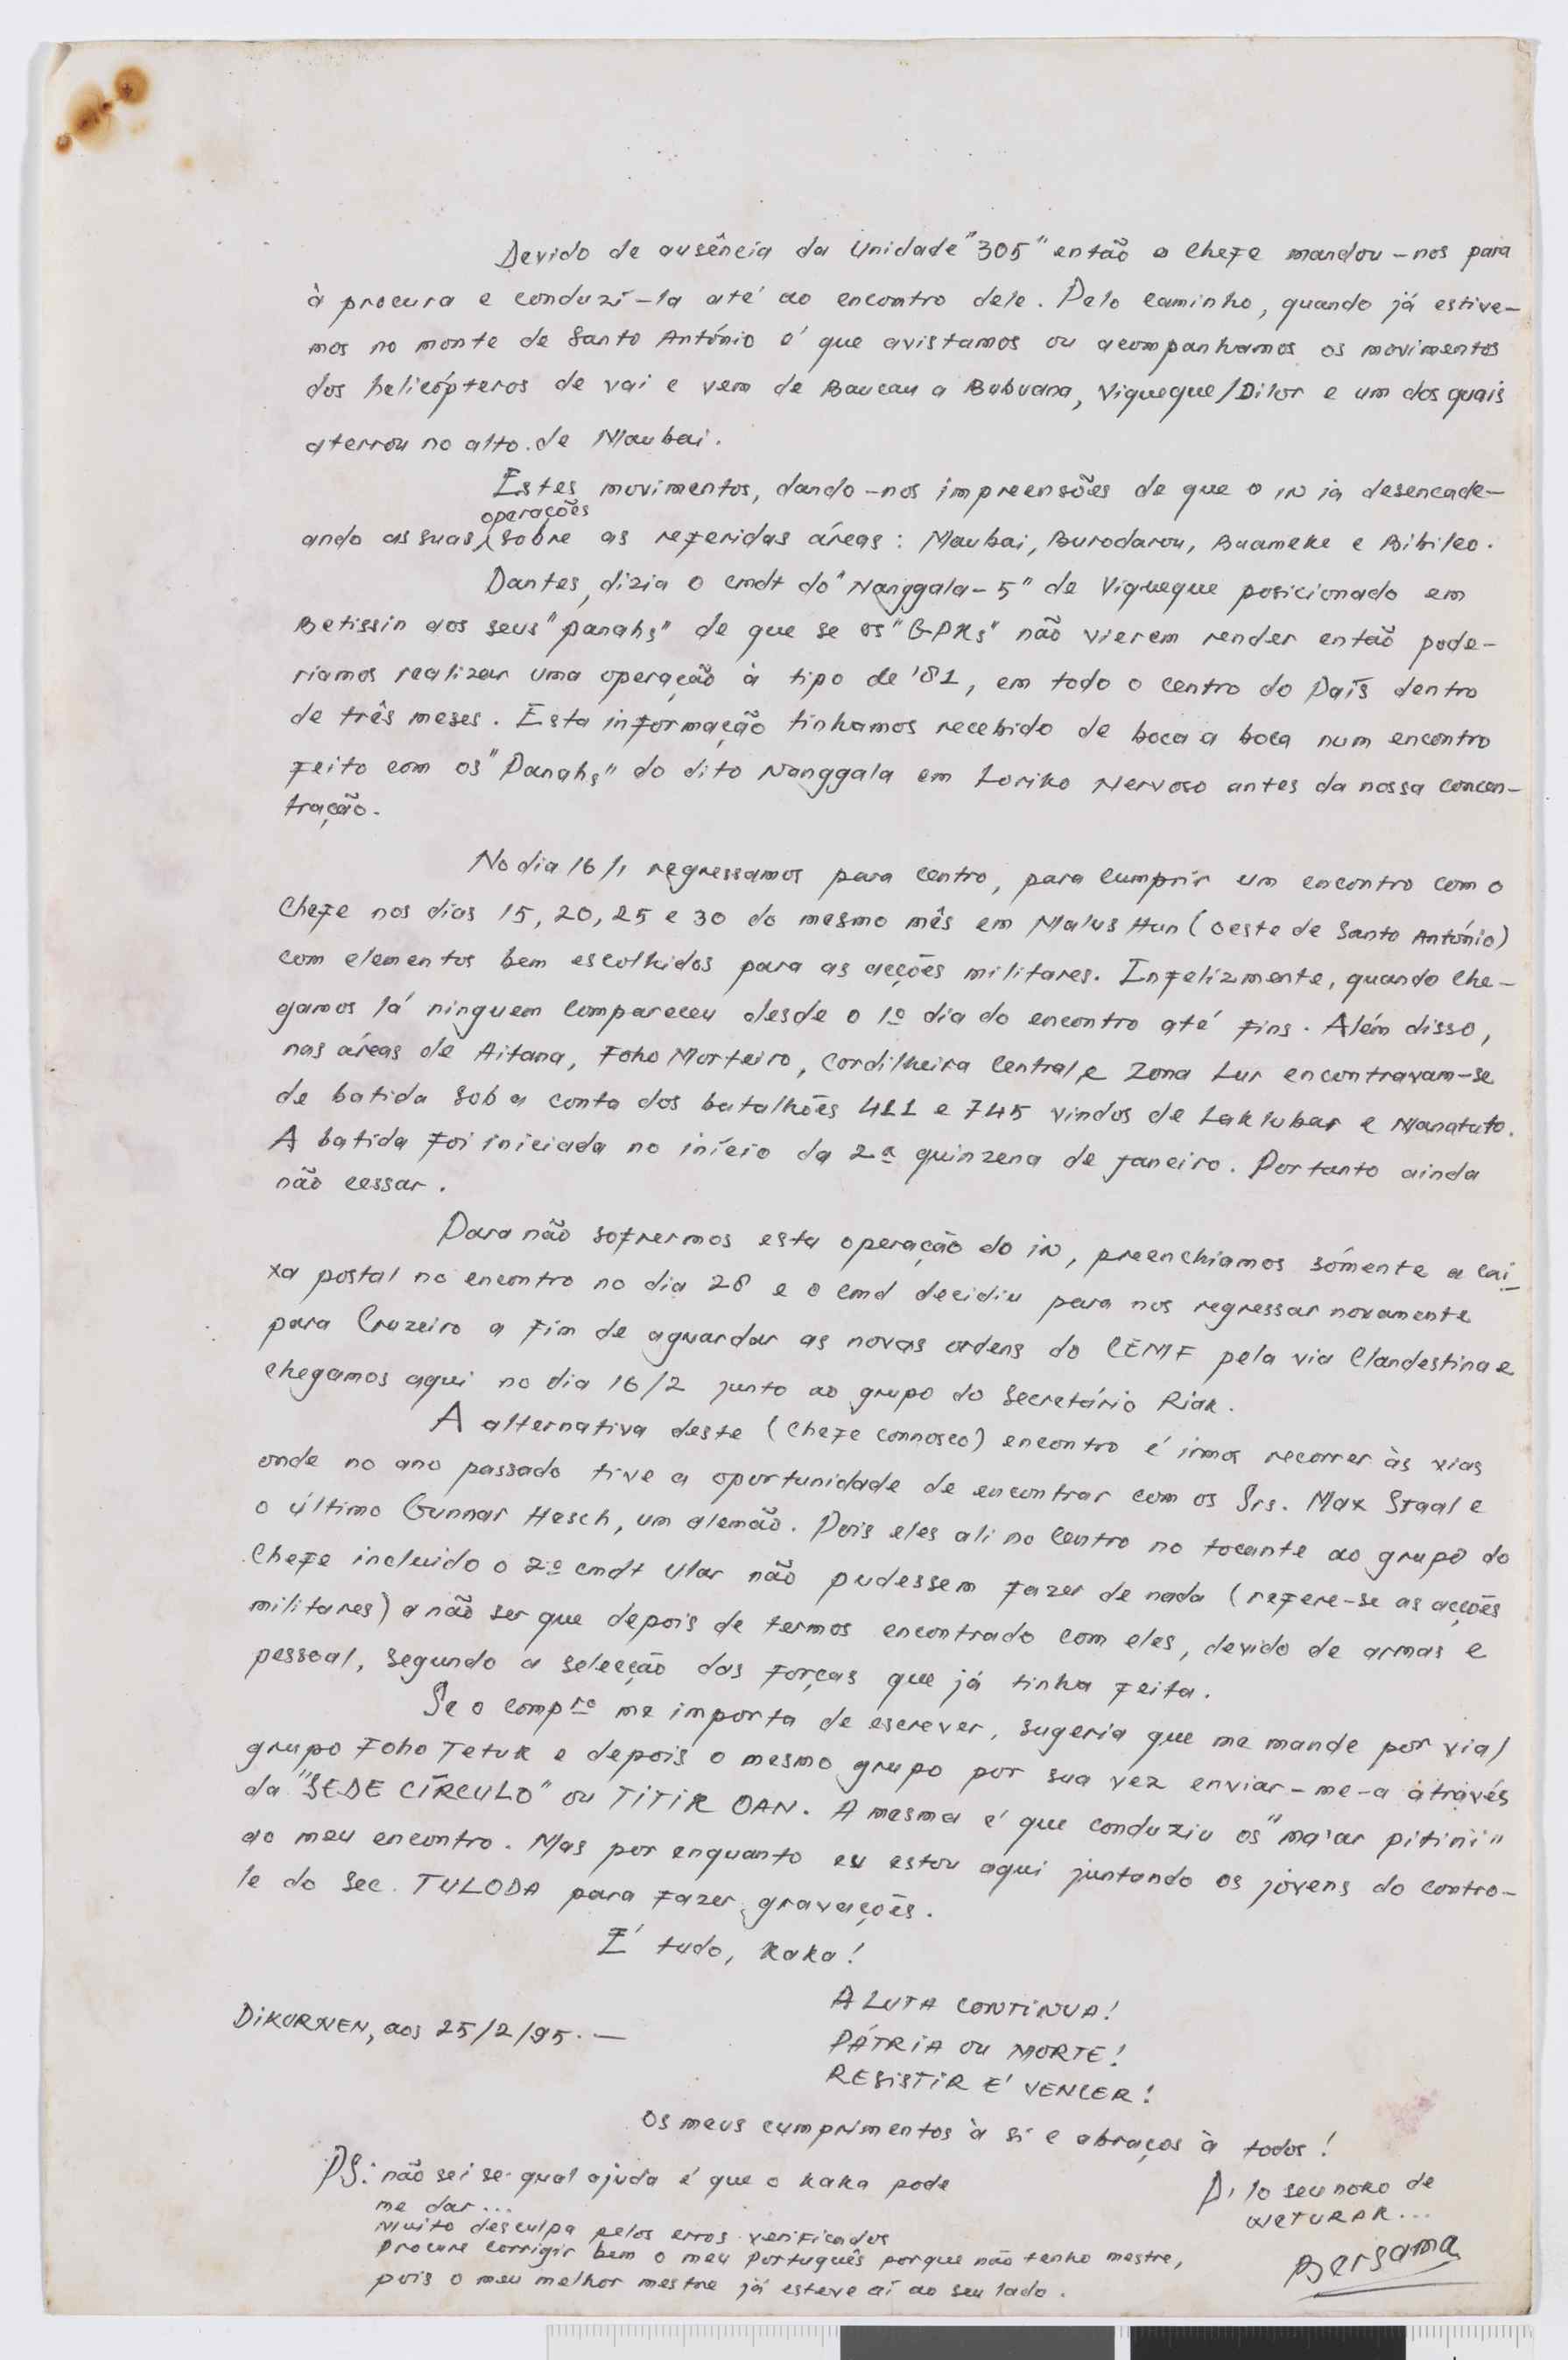 Devido de ausência da Unidade "305" então o Chefe mandou-nos para
à procura e conduzí-la até ao encontro dele. Pelo caminho, quando já estive-
mos no monte de Santo António é que avistamos ou acompanhamos os movimentos
dos helicópteros de vai e vem de Baucau a Bubuana, Viqueque/Dilor e um dos quais
aterrou no alto de Maubai.
Estes movimentos, dando-nos impreensões de que o in ia desencade-
operações
ando as suas sobre as referidas áreas: Maubai, Burodarou, Buameke e Bibileo.
Dantes, dizia o cmdt do "Nanggala-5" de Viqueque posicionado em
Betissin aos seus "panahs" de que se os "GPKs" não vierem render então pode-
riamos realizar uma operação à tipo de '81, em todo o centro do País dentro
de três meses. Esta informação tinhamos recebido de boca a boca num encontro
feito com os "Panahs" do dito Nanggala em Loriko Nervoso antes da nossa concen-
tração.
No dia 16/1 regressamos para centro, para cumprir um encontro com o
Chefe nos dias 15, 20, 25 e 30 do mesmo mês em Malus Hun (oeste de Santo António)
com elementos bem escolhidos para as acções militares. Infelizmente, quando che-
gamos lá ninguem compareceu desde o 1º dia do encontro até fins. Além disso,
nas áreas de Aitana, Foho Morteiro, Cordilheira Central e Zona Lur encontravam-se
de batida sob a conta dos batalhões 411 e 745 vindos de Laklubar e Manatuto.
A batida foi iniciada no início da 2ª quinzena de Janeiro. Portanto ainda
não cessar.
Para não sofrermos esta operação do in, preenchiamos sómente a cai-
xa postal no encontro no dia 28 e o cmd decidiu para nos regressar novamente
para Cruzeiro a fim de aguardar as novas ordens do CEMF pela via Clandestina e
chegamos aqui no dia 16/2 junto ao grupo do Secretário Riak.
A alternativa deste (Chefe connosco) encontro é irmos recorrer às vias
onde no ano passado tive a oportunidade de encontrar com os Srs. Max Staal e
o último Gunnar Hesch, um alemão. Pois eles ali no Centro no tocante ao grupo do
Chefe incluido o 2º cmdt Ular não pudessem fazer de nada (refere-se as acções
militares) a não ser que depois de termos encontrado com eles, devido de armas e
pessoal, segundo a selecção das forças que já tinha feita.
Se o compro me importa de escrever, sugeria que me mande por via
grupo Foho Tetuk e depois o mesmo grupo por sua vez enviar-me-a através
da "SEDE CÍRCULO" ou TITIR OAN. A mesma é que conduziu os "ma'ar pitinii"
ao meu encontro. Mas por enquanto eu estou aqui juntando os jovens do contro-
le do Sec. TULODA para fazer gravações.
É tudo, kaka!
A LUTA CONTINUA!
DIKURNEN, aos 25/2/95.—
PÁTRIA OU MORTE!
RESISTIR É VENCER!
Os meus cumprimentos à si e abraços à todos!
PS: não sei se qual ajuda é que o kaka pode
me dar...
Muito desculpa pelos erros verificados
Procure corrigir bem o meu Português porque não tenho mestre,
pois o meu melhor mestre já esteve aí ao seu lado.
lo seu noko de
WETURAR...
Bersama